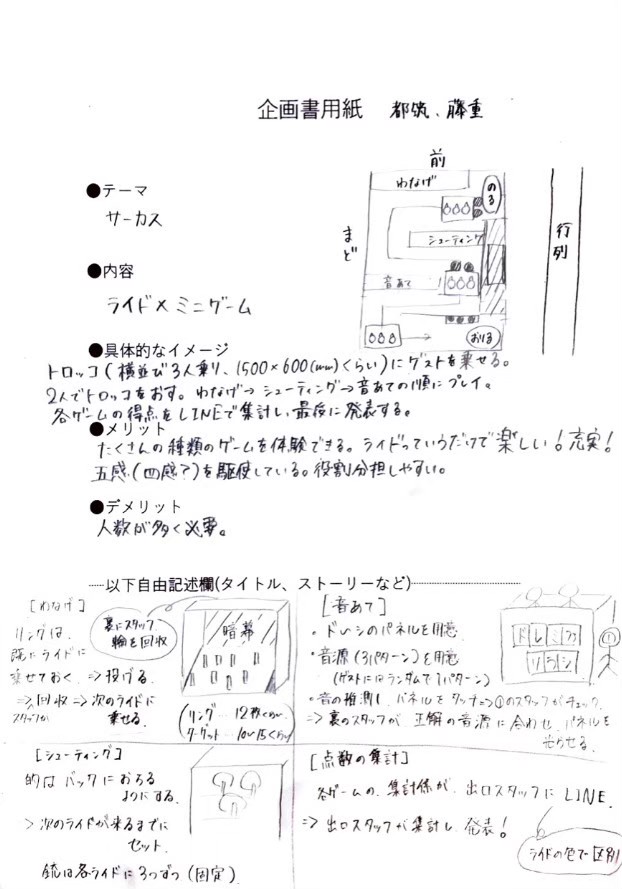 企画書用紙 都筑、藤重
前
●テーマ
サーカス
わなげ
のる
シューティング
まど
行列
音あて
おりる
●内容
ライド×ミニゲーム
●具体的なイメージ
トロッコ(横並び3人乗り、1500×600(mm)くらい)にゲストを乗せる。
2人でトロッコをおす。わなげ→シューティング→音あての順にプレイ。
各ゲームの得点をLINEで集計し、最後に発表する。
●メリット
たくさんの種類のゲームを体験できる。ライドっていうだけで楽しい!充実!
五感(四感?)を駆使している。役割分担しやすい。
●デメリット
人数が多く必要。
以下自由記述欄(タイトル、ストーリーなど)
[わなげ]
リングは、
既にライドに
乗せておく
⇒投げる。
⇒回収⇒次のライドに
スタッフが
乗せる。
裏にスタッフ、
輪を回収
暗幕
リング…12枚くらい
ターゲット…10〜15くらい
[音あて]
・ド〜シのパネルを用意
・音源(3パターン)を用意
(ゲストにはランダムで1パターン)
・音の推測し、パネルをタッチ⇒①のスタッフがチェック
⇒裏のスタッフが正解の音源に合わせ、パネルを
光らせる。
ド レ ミ ファ
ソ ラ シ
①
[シューティング]
的はバックにおちる
ようにする。
>次のライドが来るまでに
セット。
銃は各ライドに3つずつ(固定)
[点数の集計]
各ゲームの集計係が、出口スタッフにLINE.
⇒出口スタッフが集計し、発表!
ライドの色で区別